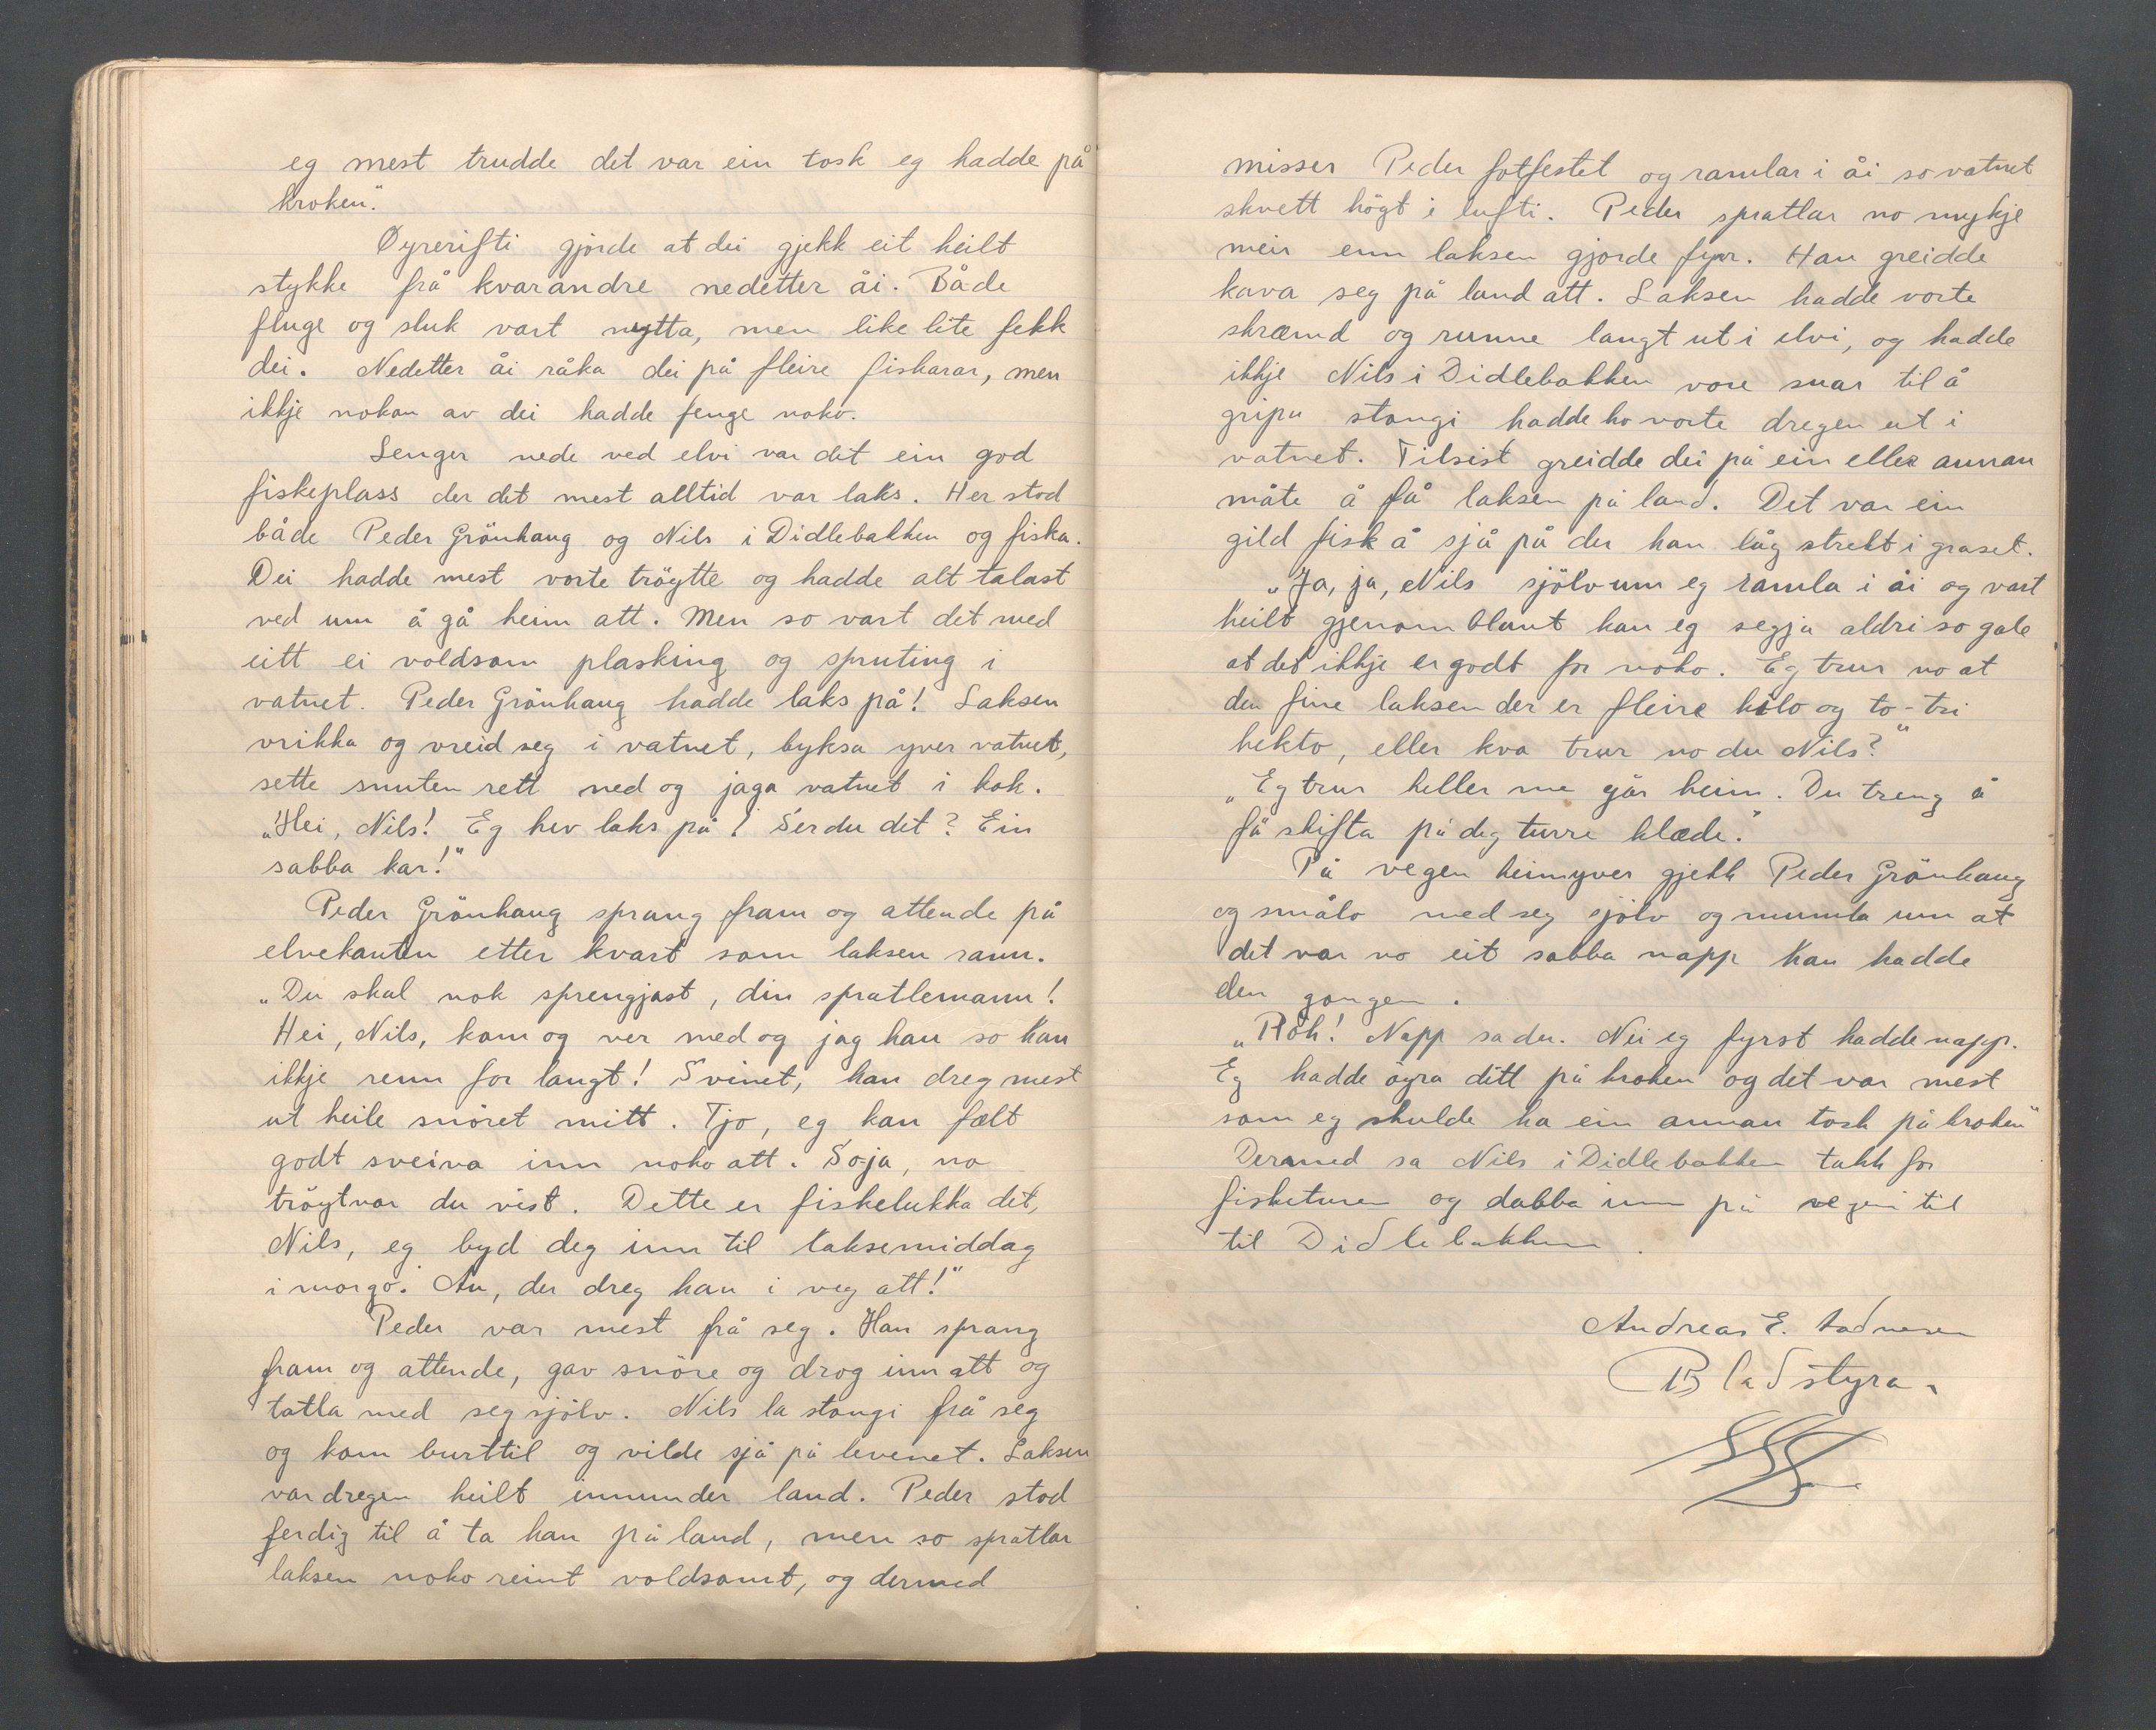 eg mest trudde det var ein tosk eg hadde på
kroken."
Öyrerifti gjorde at dei gjekk eit heilt
stykke frå kvarandre nedetter åi. Både
fluge og sluk vart nytta, men like lite fekk
dei. Nedetter åi råka dei på fleire fiskarar, men
ikkje nokon av dei hadde fenge noko.
Lenger nede ved elvi var det ein god
fiskeplass der det mest alltid var laks. Her stod
både Peder Grönhaug og Nils i Didlebakken og fiska.
Dei hadde mest vorte tröytte og hadde alt talast
ved um å gå heim att. Men so vart det med
eitt ei voldsom plasking og spruting i
vatnet. Peder Grönhaug hadde laks på! Laksen
vrikka og vreid seg i vatnet, byksa yver vatnet,
sette snuten rett ned og jaga vatnet i kok.
„Hei, Nils! Eg hev laks på! Ser du det? Ein
sabba kar!"
Peder Grönhaug sprang fram og attende på
elvekanten etter kvart som laksen rann.
„Du skal nok sprengjast, din spratlemann!
Hei, Nils, kom og ver med og jag han so han
ikkje renn for langt! Svinet, han dreg mest
ut heile snöret mitt. Tjo, eg kan fælt
godt sveiva inn noko att. So ja, no
tröytvar du visst. Dette er fiskelukka det,
Nils, eg byd deg inn til laksemiddag
i morgo. Au, der dreg han i veg att!"
Peder var mest frå seg. Han sprang
fram og attende, gav snöre og drog inn att og
tatla med seg sjölv. Nils la stongi frå seg
og kom burttil og vilde sjå på levenet. Laksen
var dregen heilt innunder land. Peder stod
ferdig til å ta han på land, men so spratlar
laksen noko reint voldsomt, og dermed
misser Peder fotfestet og ramlar i åi so vatnet
skvett högt i lufti. Peder spratlar no mykje
meir enn laksen gjorde fyrr. Han greidde
kava seg på land att. Laksen hadde vorte
skræmd og runne langt ut i elvi, og hadde
ikkje Nils i Didlebakken vore snar til å
gripa stongi hadde ho vorte dregen ut i
vatnet. Tilsist greidde dei på ein eller annan
måte å få laksen på land. Det var ein
gild fisk å sjå på der han låg strekt i graset.
„Ja, ja, Nils sjölv um eg ramla i åi og vart
heilt gjenomblaut kan eg segja aldri so gale
at det ikkje er godt for noko. Eg trur no at
den fine laksen der er fleire kilo og to-tri
hekto, eller kva trur no du Nils?"
„Eg trur heller me går heim. Du treng å
få skifta på deg turre klæde."
På vegen heimyver gjekk Peder Grönhaug
og smålo med seg sjölv og mumla um at
det var no eit sabba napp han hadde
den gongen.
„Höh! Napp sa du. Nei eg fyrst hadde napp.
Eg hadde öyra ditt på kroken og det var mest
som eg skulde ha ein annan tosk på kroken"
Dermed sa Nils i Didlebakken takk for
fisketuren og dabba inn på vegen til
til Didlebakken.
Andreas E.
Bladstyra.